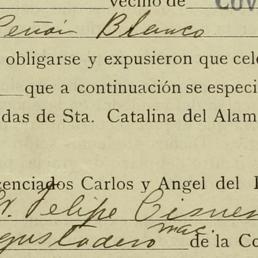 vecino de
Peñón Blanco
obligarse y expusieron que cele
que a continuación se especi
das de Sta. Catalina del Alam
cenciados Carlos y Angel del
Felipe Cisne
de la Co